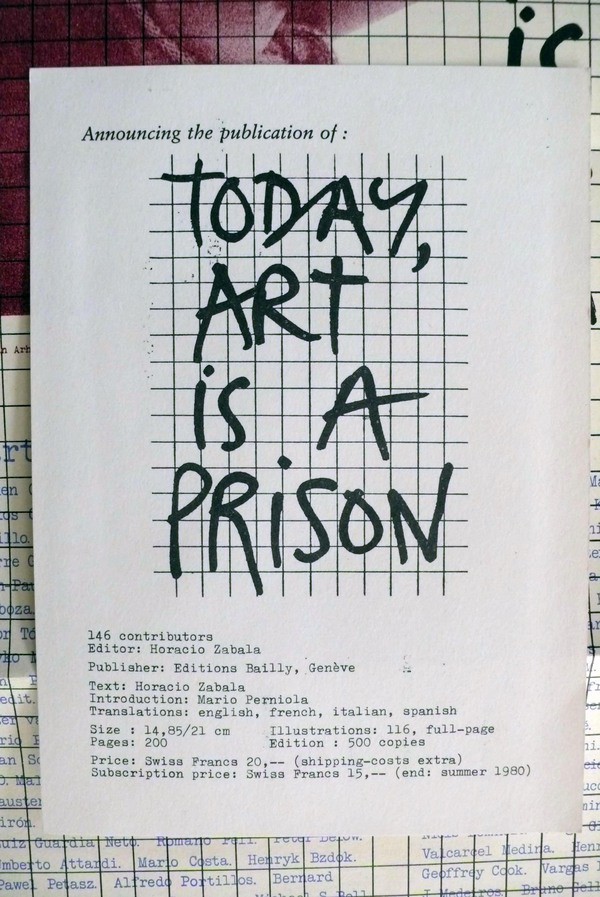 is
Announcing the publication of :
TODAY,
ART
is A
PRiSON
146 contributors
Editor: Horacio Zabala
Publisher: Editions Bailly, Genève
Text: Horacio Zabala
Introduction: Mario Perniola
Translations: english, french, italian, spanish
Size : 14,85/21 cm Illustrations: 116, full-page
Pages: 200 Edition : 500 copies
Price: Swiss Francs 20,-- (shipping-costs extra)
Subscription price: Swiss Francs 15,-- (end: summer 1980)
Luiz Guardia Neto. Romano Peli.
Umberto Attardi. Mario Costa. Henryk Bzdok. Valcarcel Medina.
Pawel Petasz. Alfredo Portillos. Bernard Geoffrey Cook. Vargas
J Medeiros. Bruno